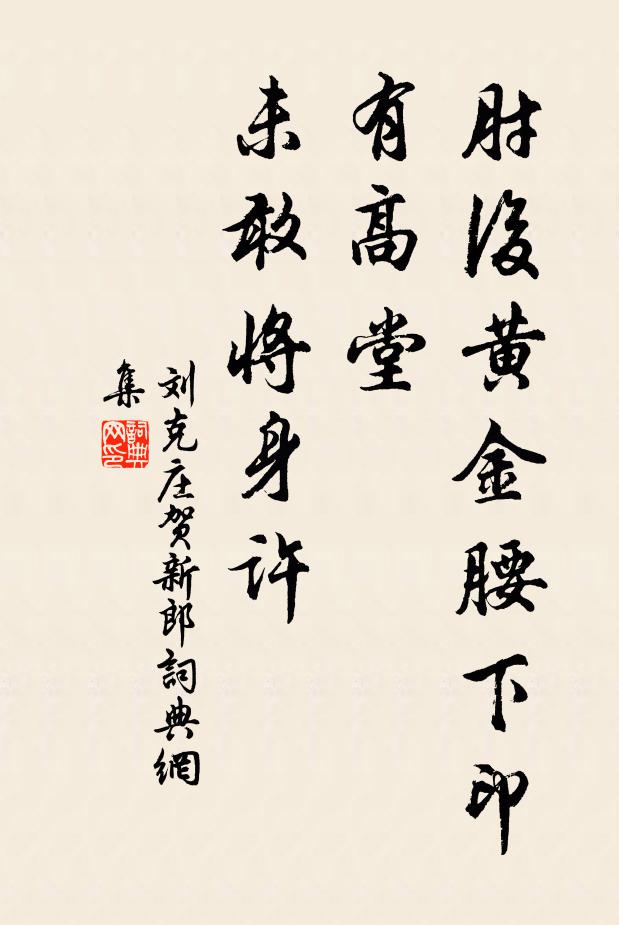 肘後黄金腰下印
有高堂
未敢將身許
刘克庄贺新郎詞典網
集
詞典网印